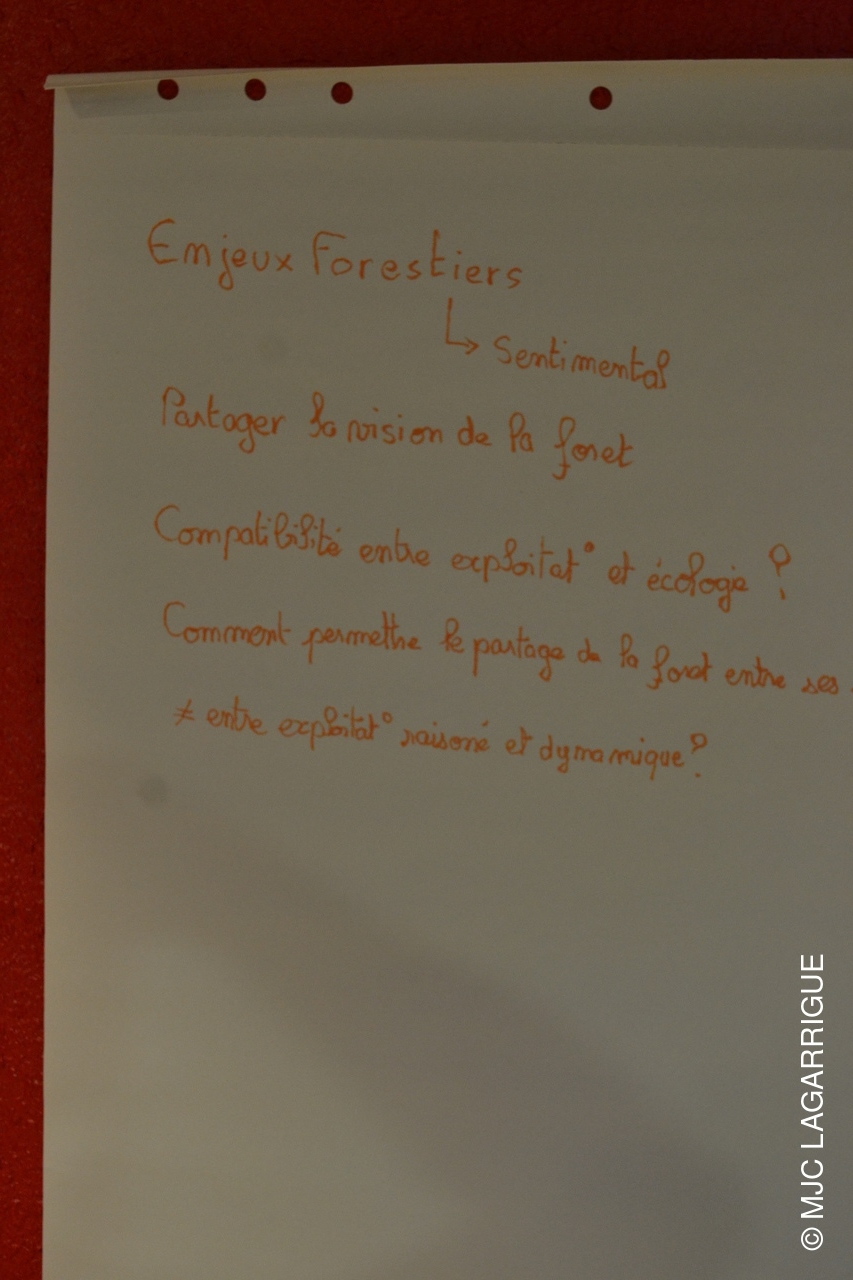 Enjeux Forestiers
↳ Sentimental
Partager la vision de la foret
Compatibilité entre exploitat° et écologie ?
Comment permettre le partage de la foret entre ses
≠ entre exploitat° raisoné et dynamique ?
© MJC LAGARRIGUE